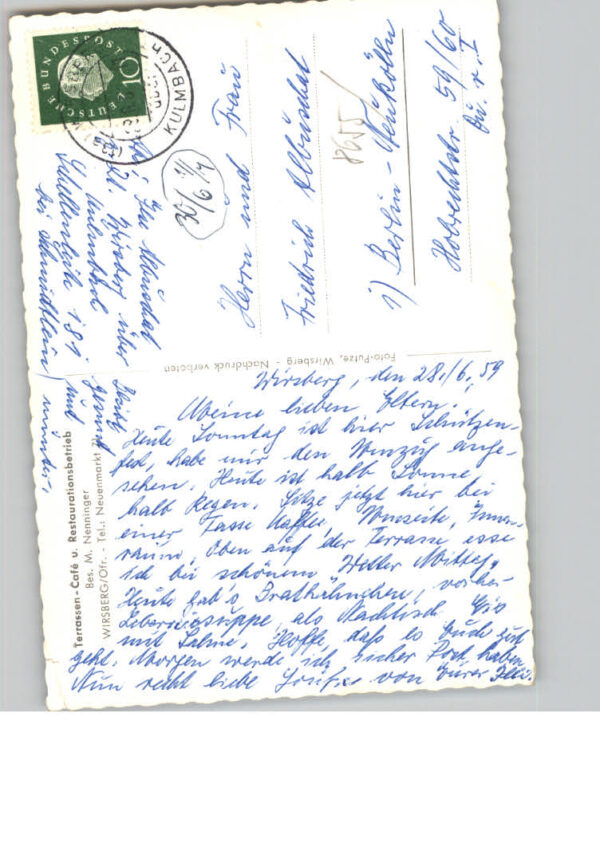 Terrassen-Café u. Restaurationsbetrieb
Bes. M. Nenninger
WIRSBERG/Ofr. - Tel.: Neuenmarkt
Foto-Putze, Wirsberg - Nachdruck verboten
DEUTSCHE BUNDESPOST
10
KULMBACH
Wirsberg, den 28./6.59
Meine lieben Eltern!
Heute Sonntag ist hier Schützen-
fest, habe mir den Umzug ange-
sehen. Heute ist halb Sonne,
halb Regen. Sitze jetzt hier bei
einer Tasse Kaffee, Innen-
raum. Oben auf der Terrasse esse
ich bei schönem Wetter Mittag.
Heute gab's Brathähnchen, vorher
Lebersuppe, als Nachtisch Eis
mit Sahne. Hoffe, daß es Euch gut
geht. Morgen werde ich sicher Post haben.
Nun recht liebe Grüße von Eurer
Herrn und Frau
Friedrich
1) Berlin-Neukölln
Hobrechtstr. 59/60
Qu. r. I
30/6
8655
Wirsberg über
bei
gesund
und
munter.